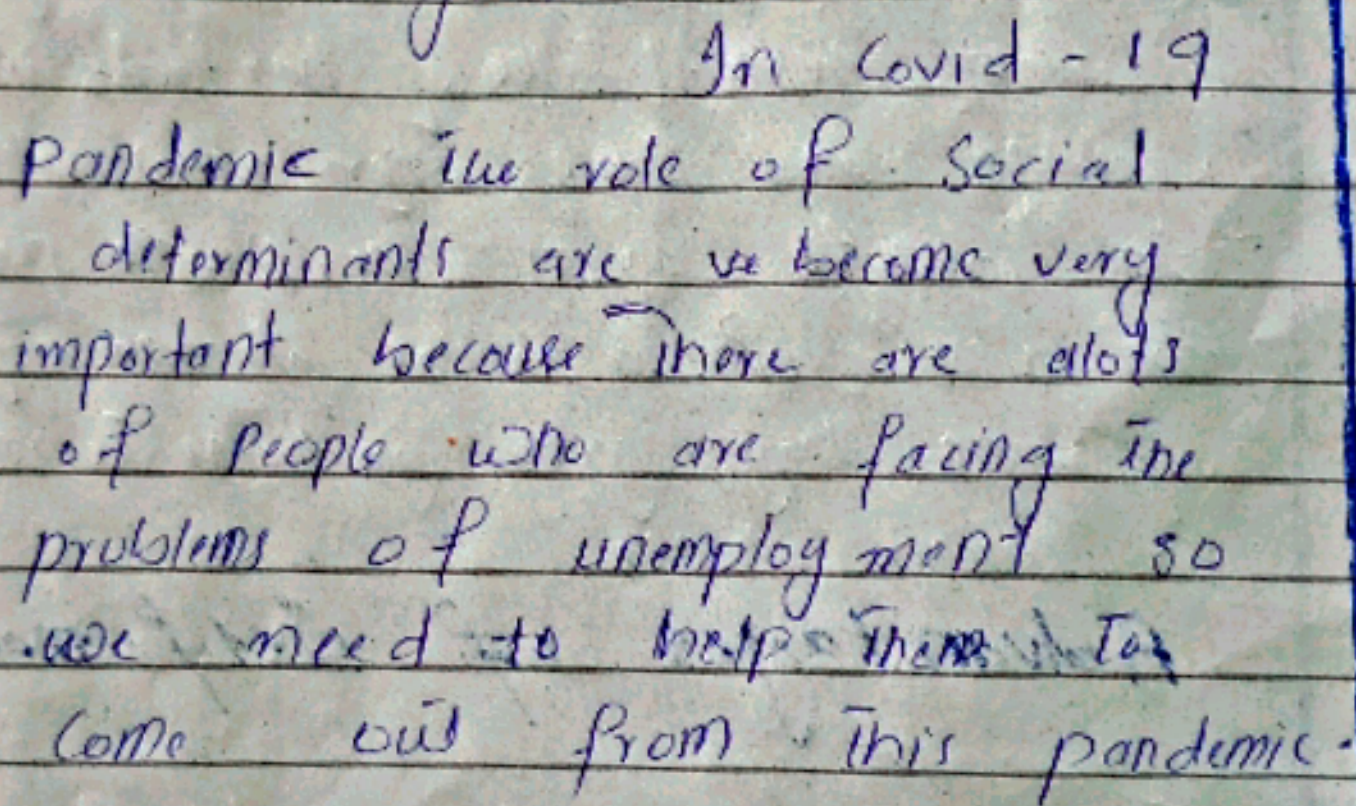 In Covid - 19
pandemic the role of Social
determinants are ve become very
important because There are alots
of People who are facing the
problems of unemployment so
we need to help them to
come out from This pandemic.